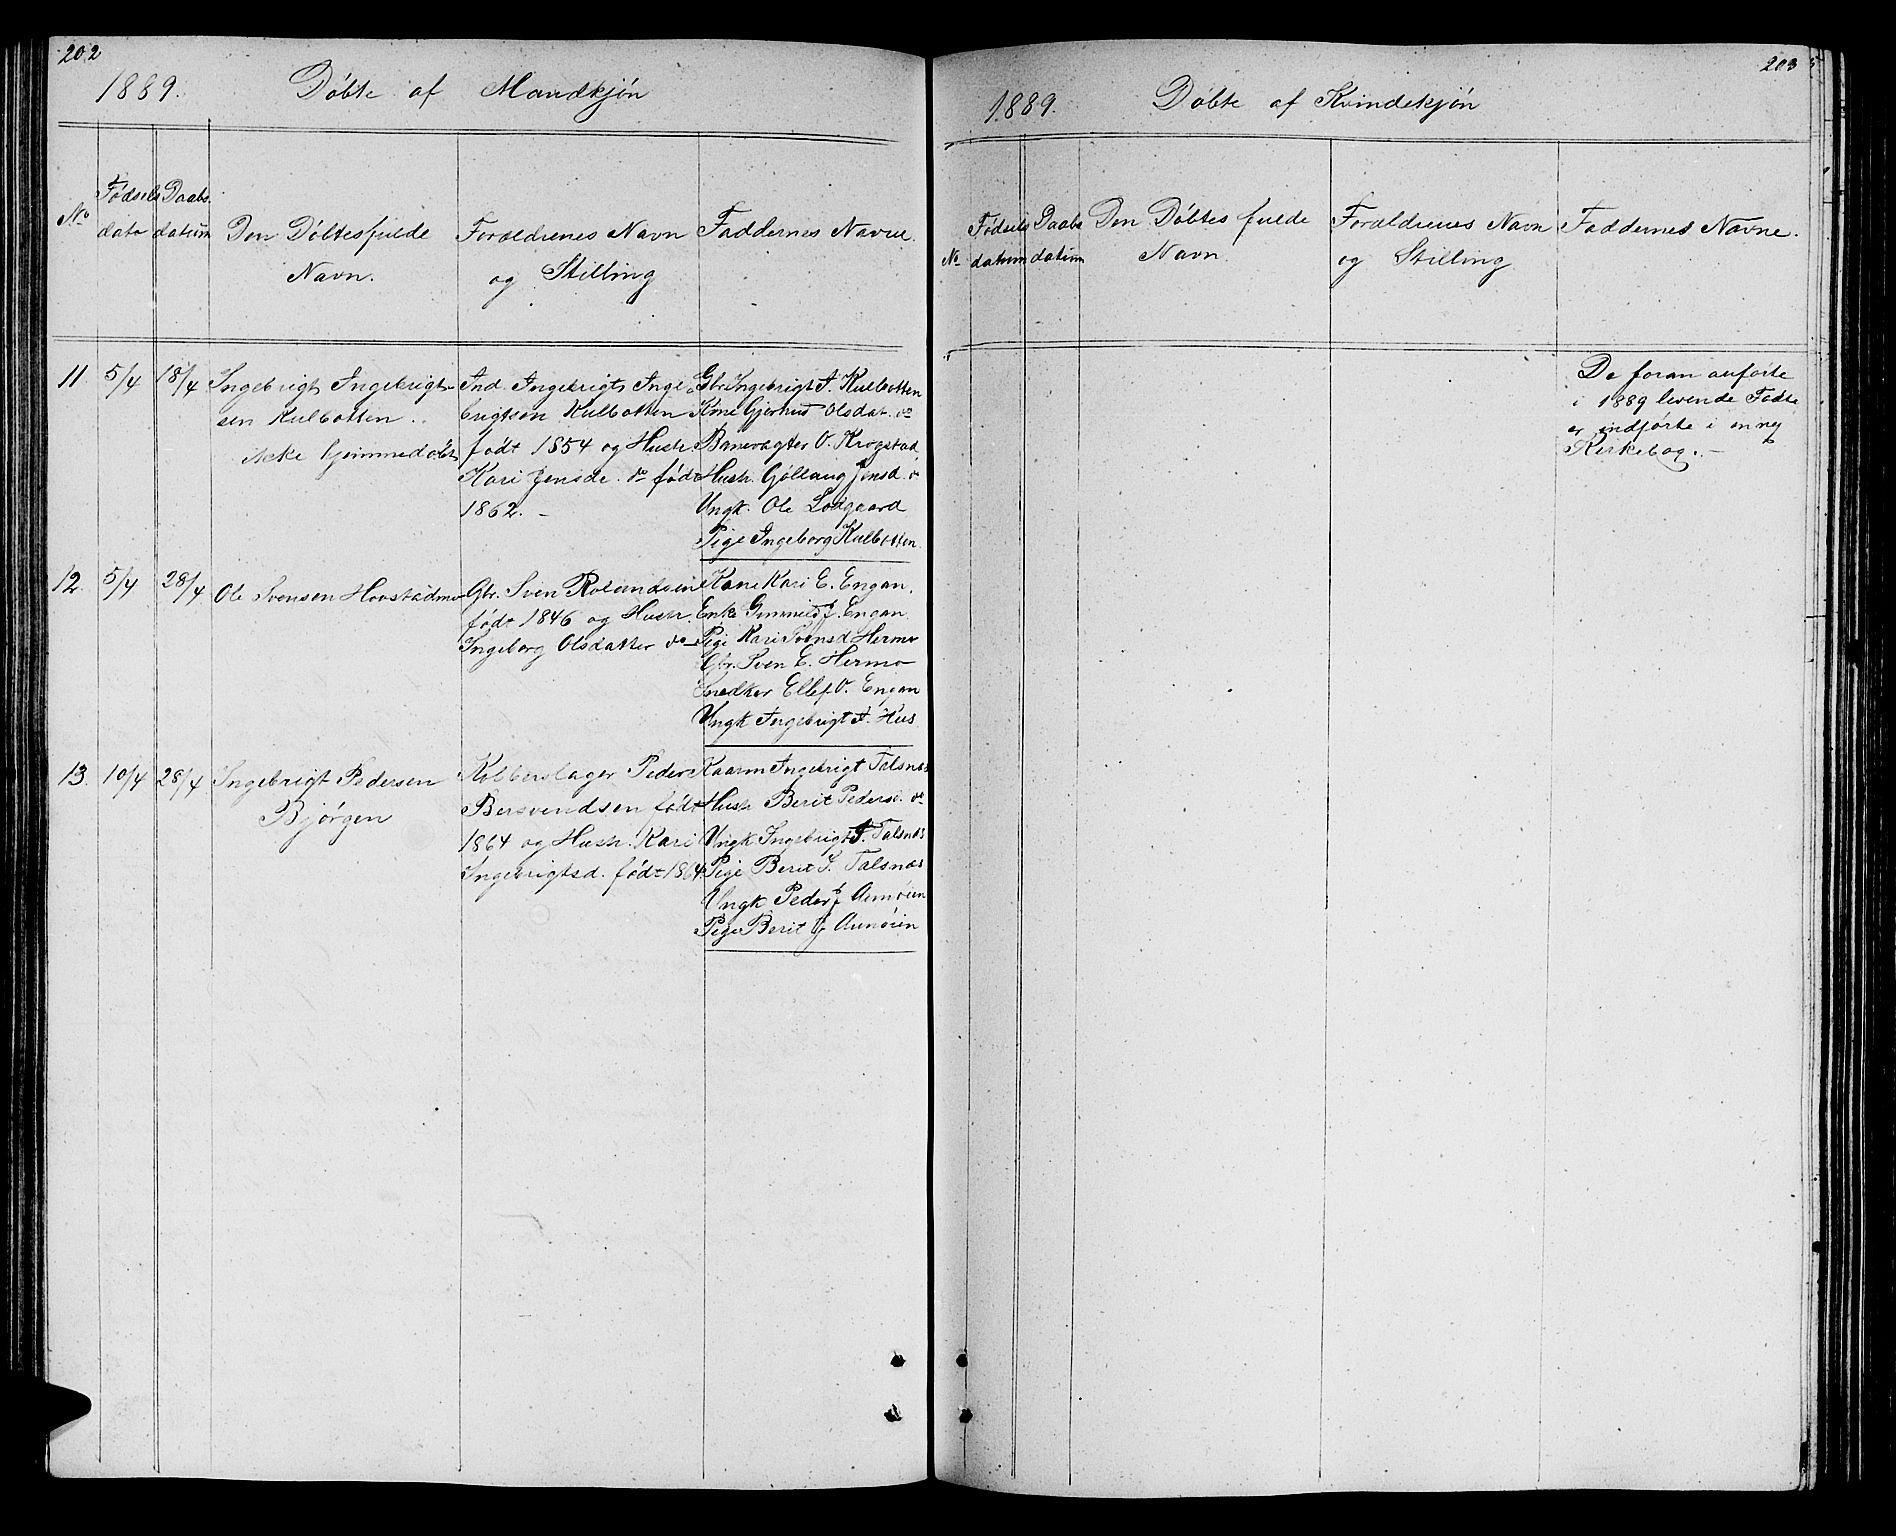 202
1889.
Døbte af Mandkjøn
No
Fødsels
dato
Daabs
datum
Den Døbtes fulde
Navn.
Forældrenes Navn
og Stilling
Faddernes Navne.
11. 5/4 18/4
Ingebrigt Ingebrigt-
sen Kulbotten.
ikke hjemmedøbt
Ind. Ingebrigt Inge-
brigtsen Kulbotten
født 1854 og Hustr.
Kari Jensd. do født
1862. -
Gbr. Ingebrigt I. Kulbotten
Kone Gjertrud Olsdat. do
Banevogter O. Krogstad
Hustr. Gollaug Jensd. do
Ungk. Ole Lodgaard
Pige Ingeborg Kulbotten.
12. 5/4 28/4
Ole Svensen Hovstadmo
Gbr. Sven
født 1846 og Hustr.
Ingeborg Olsdatter do
Kone Kari E. Engan.
Enke J. Engan
Pige Kari Svensd Hermo
Gbr. Sven E. Hermo
Snedker Ellef O. Engan
Ungk Ingebrigt I. Hus
13. 10/4 28/4
Ingebrigt Pedersen
Bjørgen
Kobberslager Peder
Bersvendsen født
1864 og Hustr. Kari
Ingebrigtsd. født 1864
Kaarm Ingebrigt Talsnæs
Hustr Berit Pedersd. do
Ungk Ingebrigt I. Talsnæs
Pige Berit I. Talsnæs
Ungk Peder J Aunøien
Pige Berit J Aunøien
203
1889.
Døbte af Kvindekjøn
No
Fødsels
datum
Daabs
datum
Den Døbtes fulde
Navn.
Forældrenes Navn
og Stilling
Faddernes Navne.
De foran anførte
i 1889 levende Fødte
er indførte i en ny
Kirkebog. -